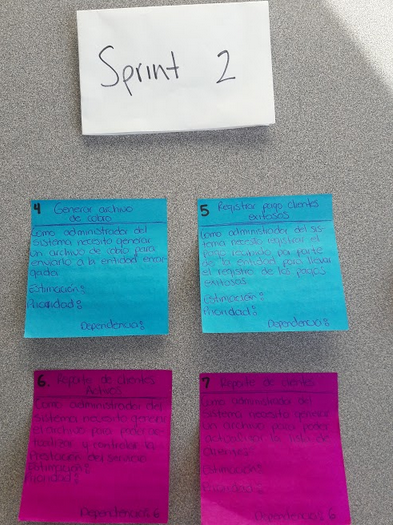 Sprint 2
4 Generar archivo
de cobro
Como administrador del
sistema necesito generar
un archivo de cobro para
enviarlo a la entidad encar
gada.
Estimación:
Prioridad:
Dependencia:
5 Registrar pago clientes
exitosos
Como administrador del sis-
tema necesito registrar el
pago realizado por parte
de la entidad para llevar
el registro de los pagos
exitosos
Estimación:
Prioridad:
Dependencia:
6. Reporte de clientes
Activos
Como administrador del
sistema necesito generar
un archivo para poder
y controlar la
prestación del servicio
Estimación:
Prioridad:
Dependencia: 5
7 Reporte de clientes
Como administrador del
sistema necesito generar
un archivo para poder
la lista de
Estimación:
Prioridad:
Dependencia: 6